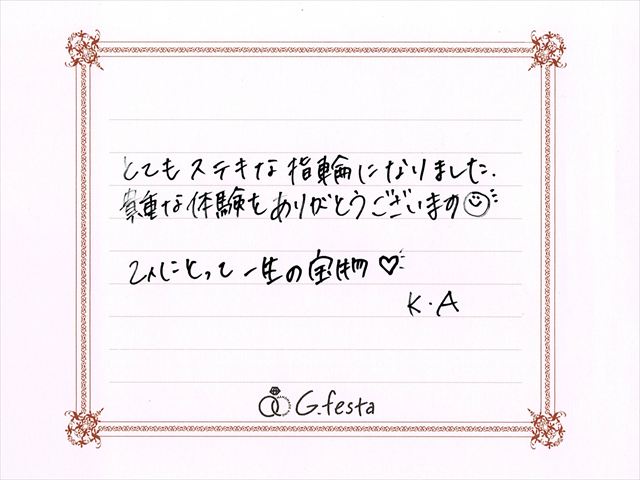 とてもステキな指輪になりました.
貴重な体験をありがとうございます☺
2人にとって一生の宝物♡
K・A
G.festa